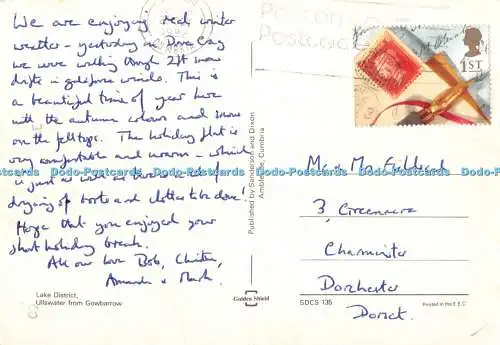 We are enjoying real winter
weather - yesterday on Dove Crag
we were walking through 2ft snow
drifts in galeforce winds. This is
a beautiful time of year here
with the autumn colours and snow
on the fell tops. The holiday flat is
very comfortable and warm - which
is just as well as there's lots of
drying of boots and clothes to be done!
Hope that you enjoyed your
short holiday break.
All our love Bob, Christine,
Amanda & Mark.
Lake District,
Ullswater from Gowbarrow
Published by Sanderson and Dixon
Ambleside, Cumbria
Golden Shield
1ST
Mr & Mrs
3, Greenacre
Charminster
Dorchester
Dorset.
SDCS 135
Printed in the E.E.C
Dodo-Postcards Dodo-Postcards Dodo-Postcards Dodo-Postcards Dodo-Postcards Dodo-Postcards